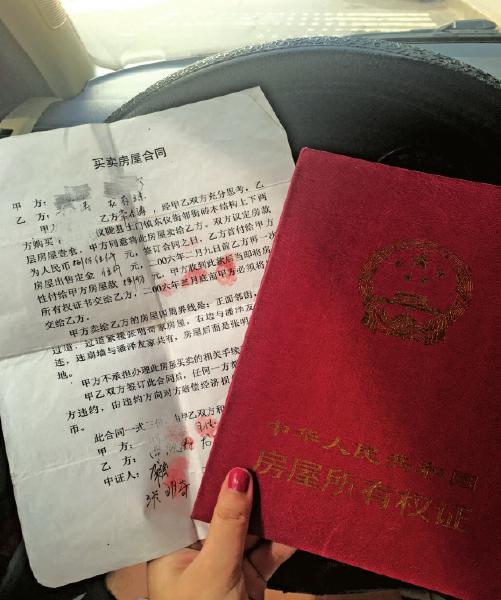 买卖房屋合同
甲 方:
乙 方:
甲 乙方 经甲乙双方充分思考，乙
方购买 汉陇县土门镇东仪街邻街砖木结构上下两
层房屋壹套，甲方同意将此房屋卖给乙方。双方议定房款
为人民币 元，签订合同之日，乙方首付给甲方
房屋出售定金 元，二00六年二月九日前乙方再一次
性付给甲方房屋款 元，甲方收到此款后当即将房
所有权证书交给乙方，二00六年三月底前甲方必须将
交给乙方。
甲方卖给乙方的房屋四周界线是：正面邻街，
过道，过道紧接张明奇家房屋，右墙与潘泽友
连，连扇墙与潘泽友家共有，房屋后面是张明
地。
甲方不承担办理此房屋买卖的相关手续
甲乙双方签订此合同后，任何一方都
方违约，由违约方向对方赔偿经济损
币。
此合同一式三份，由甲乙双方和
甲 方:
乙 方:
中证人:
张明奇
中华人民共和国
房屋所有权证